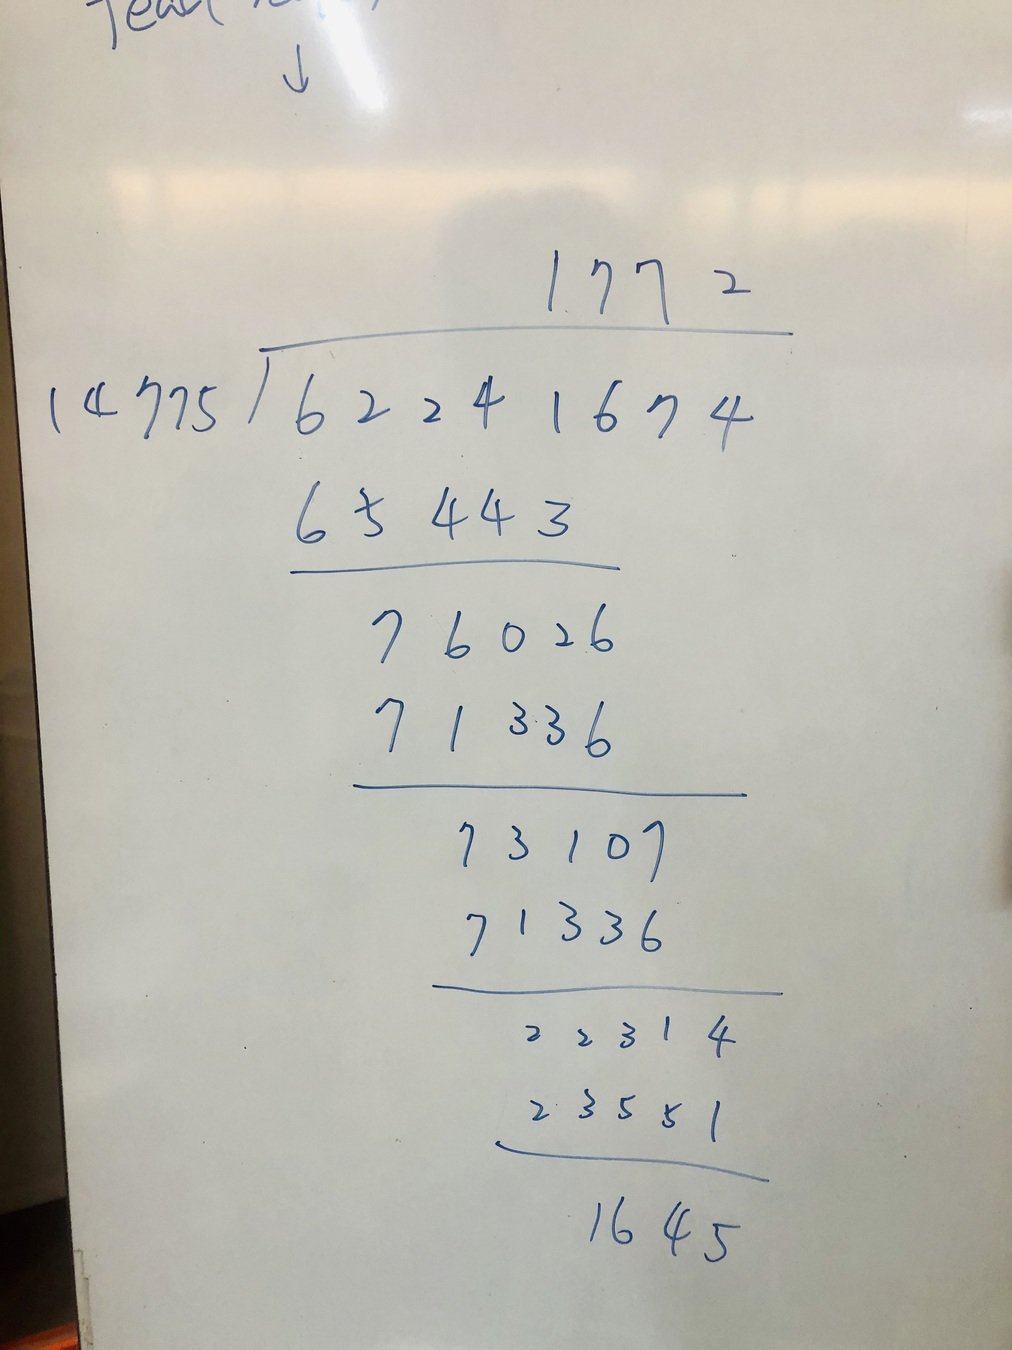 ↓
1772
14775)62241674
65443
76026
71336
73107
71336
22314
23551
1645